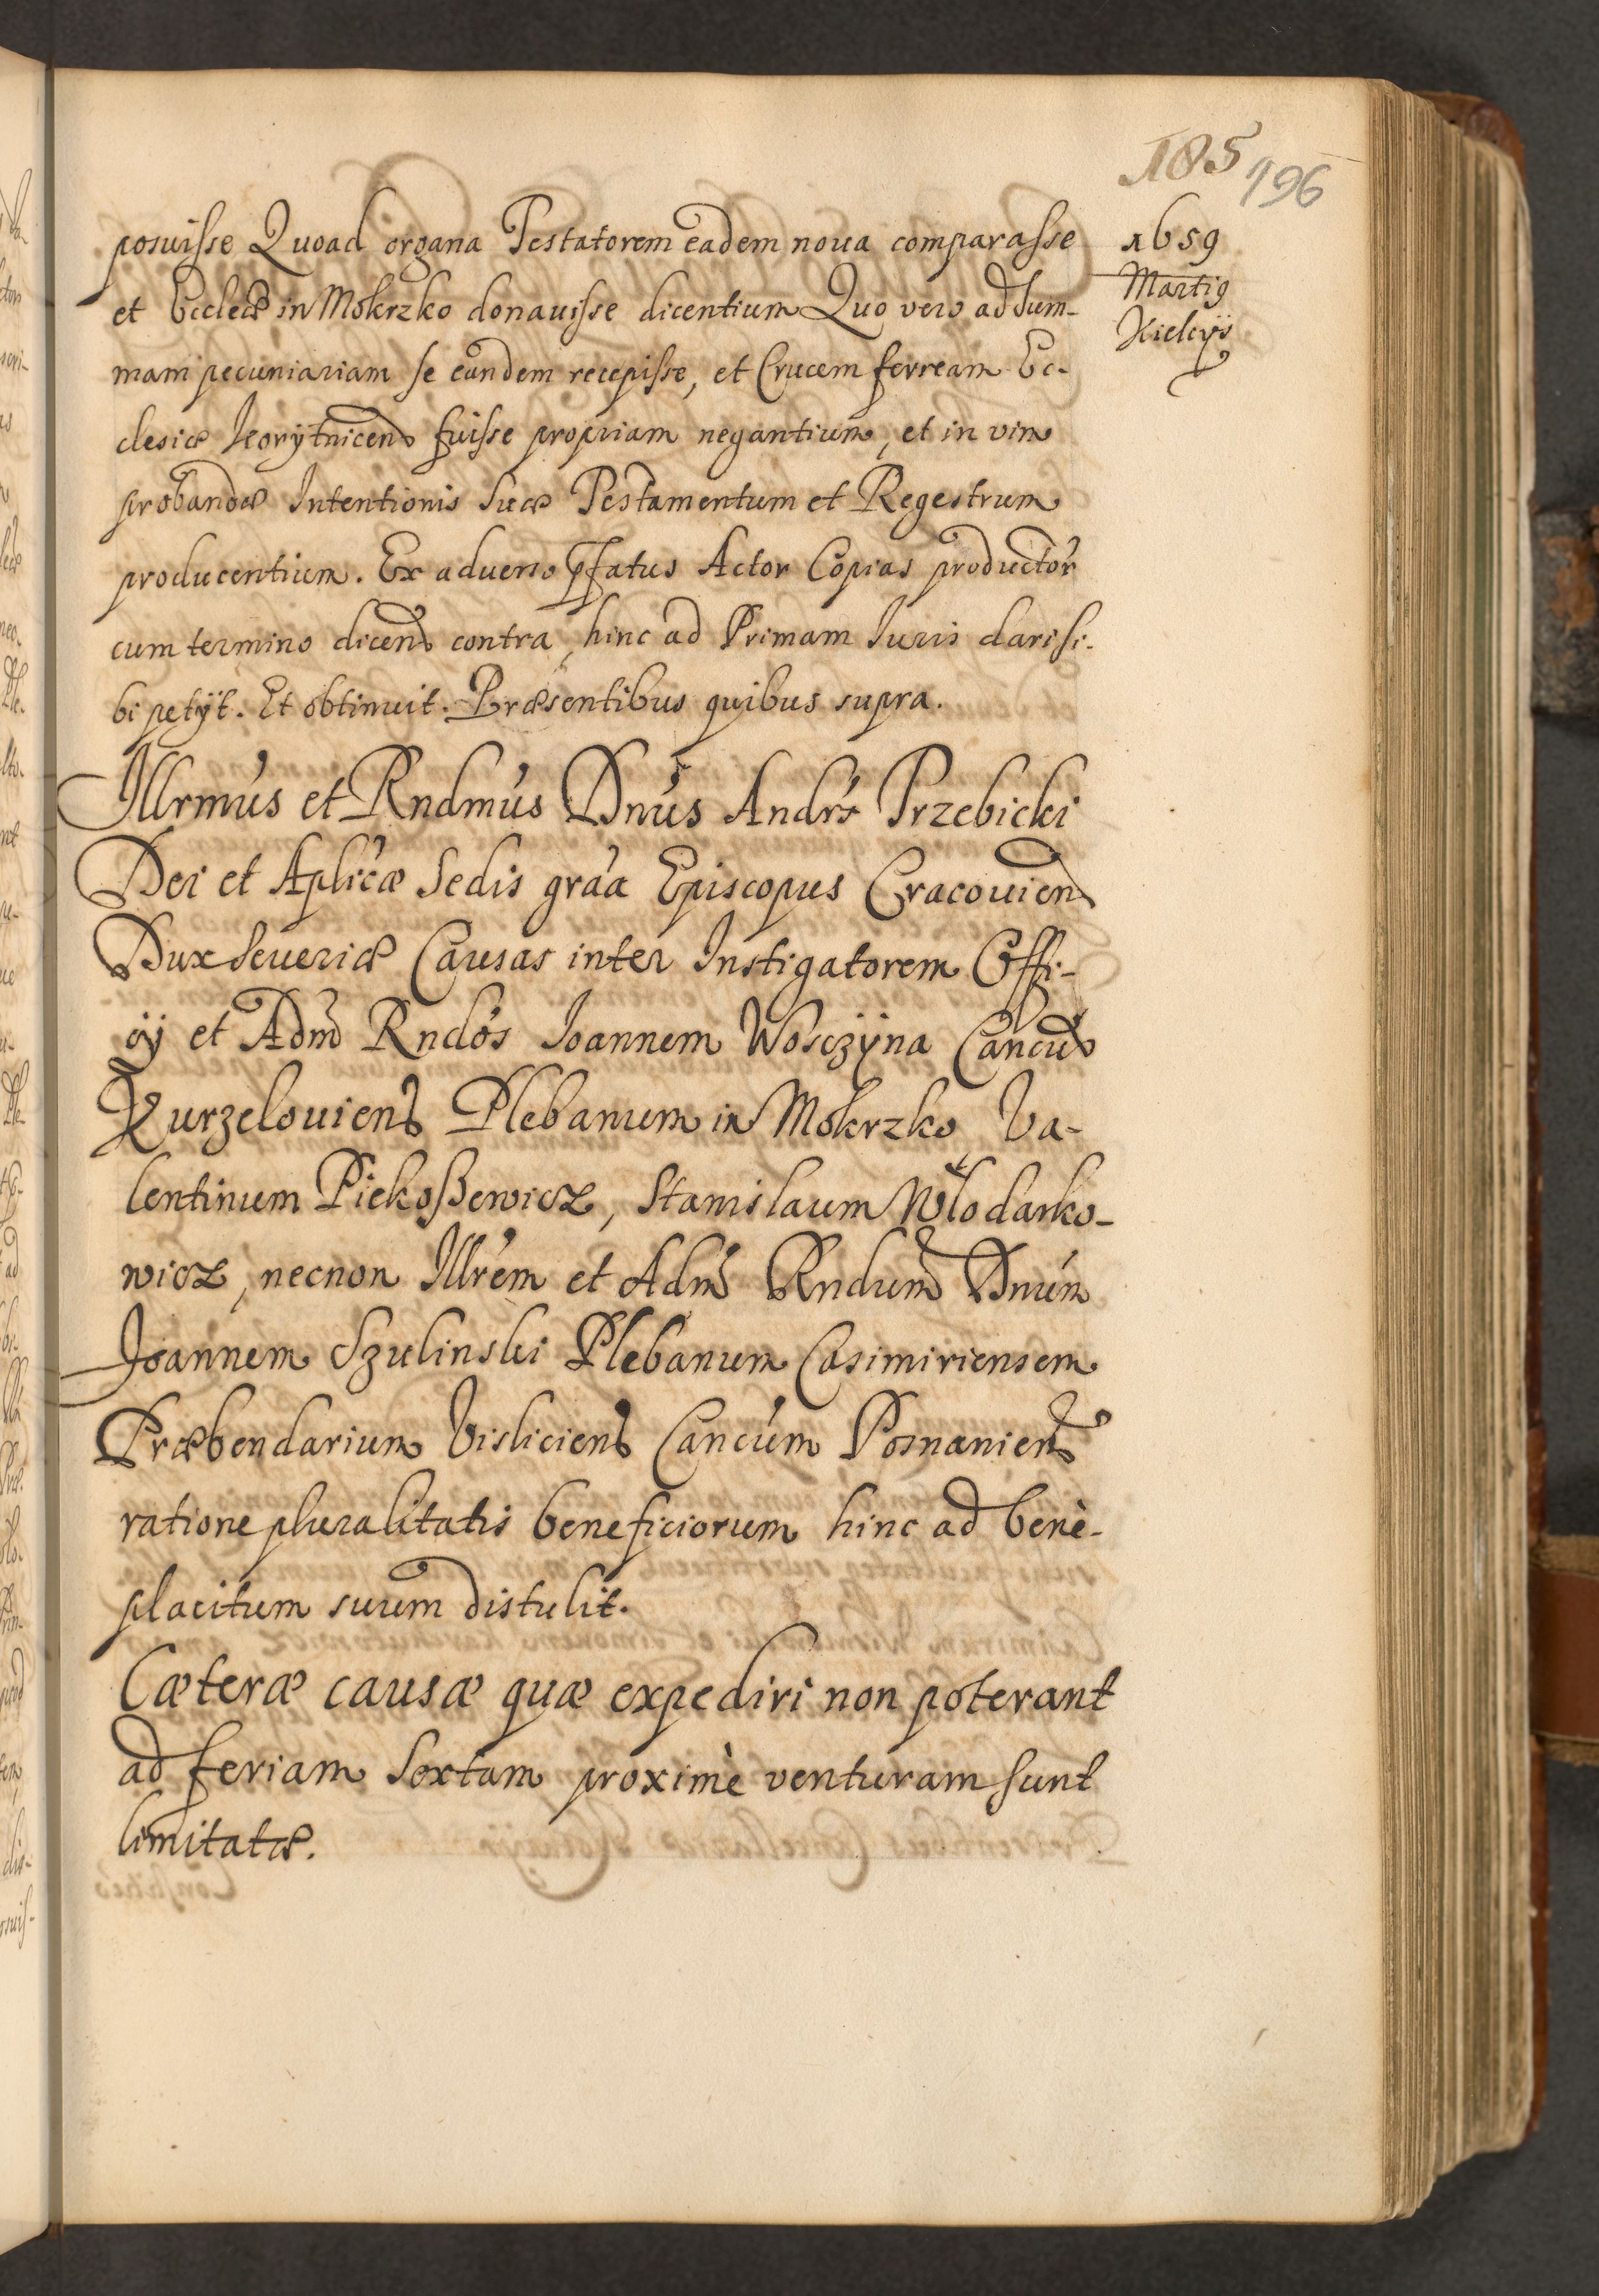 185
196
1659
Martij
Kielcys
posuisse Quoad organa Testatorem eadem noua comparasse
et Eccleæ in Mokrzko donauisse dicentium Quo vero ad Sum-
mam pecuniariam se eandem recepisse, et Crucem ferream Ec-
clesiæ fuisse propriam negantium, et in vim
probandæ Intentionis Suæ Testamentum et Regestrum
producentium. Ex aduerso pfatus Actor Copias productor
cum termino dicend contra, hinc ad Primam Iuris dari si-
bi petÿt. Et obtinuit. Præsentibus quibus supra.
Illrmus et Rndmus Dnus Andrs Trzebicki
Dei et Aplicæ Sedis graa Episcopus Cracouien
Dux Seueriæ Causas inter Instigatorem Offi-
cÿ et Adm Rndos Ioannem Wosczÿna Cancum
Kurzelouiens Plebanum in Mokrzko Va-
lentinum Piekoßewicz, Stanislaum Wlodarko-
wicz, necnon Illrem et Adm Rndum Dnum
Joannem Szulinski Plebanum Casimiriensem
Præbendarium Visliciens Cancum Posnaniens
ratione pluralitatis beneficiorum hinc ad benè-
placitum suum distulit.
Cæteræ causæ quæ expediri non poterant
ad feriam Sextam proximè venturam sunt
limitatæ.